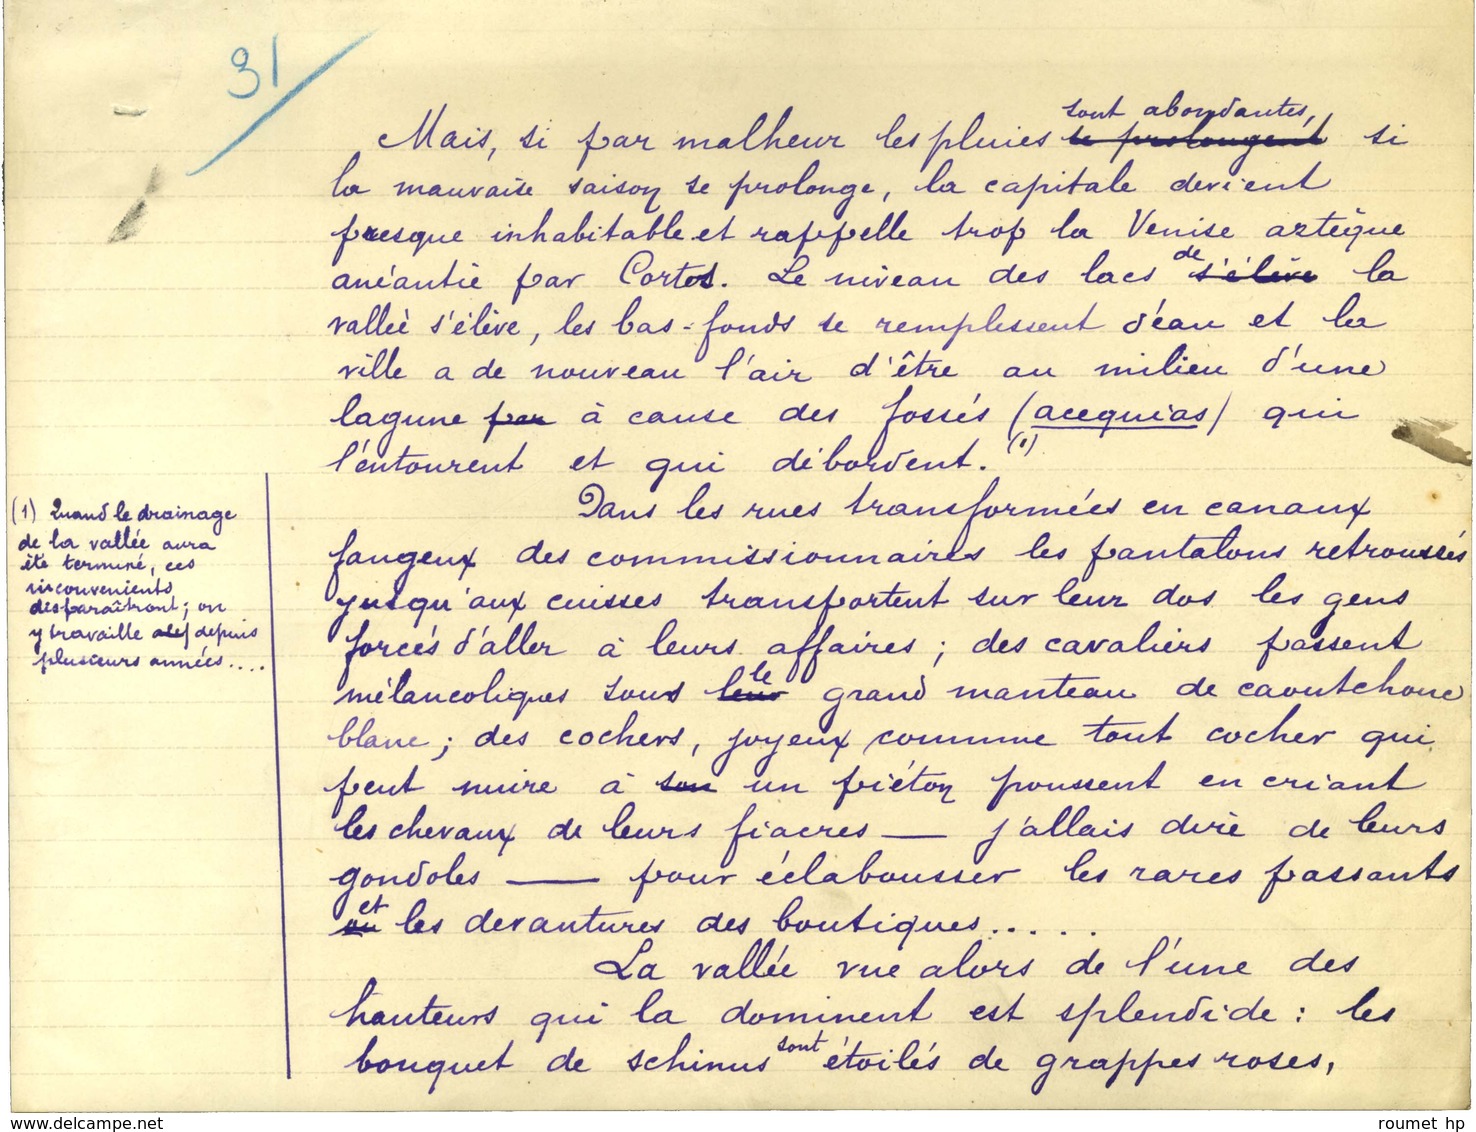 31
sont abondantes,
Mais, si par malheur les pluies se prolongent si
la mauvaise saison se prolonge, la capitale devient
presque inhabitable et rappelle trop la Venise aztèque
anéantie par Cortes. Le niveau des lacs de s'élève la
vallée s'élève, les bas-fonds se remplissent d'eau et la
ville a de nouveau l'air d'être au milieu d'une
lagune par à cause des fossés (acequias) qui
l'entourent et qui débordent. (1)
Dans les rues transformées en canaux
fangeux des commissionnaires les pantalons retroussés
jusqu'aux cuisses transportent sur leur dos les gens
forcés d'aller à leurs affaires ; des cavaliers passent
mélancoliques sous leur le grand manteau de caoutchouc
blanc ; des cochers, joyeux comme tout cocher qui
peut nuire à son un piéton poussent en criant
les chevaux de leurs fiacres — j'allais dire de leurs
gondoles — pour éclabousser les rares passants
ou et les devantures des boutiques.....
La vallée vue alors de l'une des
hauteurs qui la dominent est splendide : les
bouquet de schinus sont étoilés de grappes roses,
(1) Quand le drainage
de la vallée aura
été terminé, ces
inconvenients
disparaîtront ; on
y travaille depuis
plusieurs années....
roumet hp